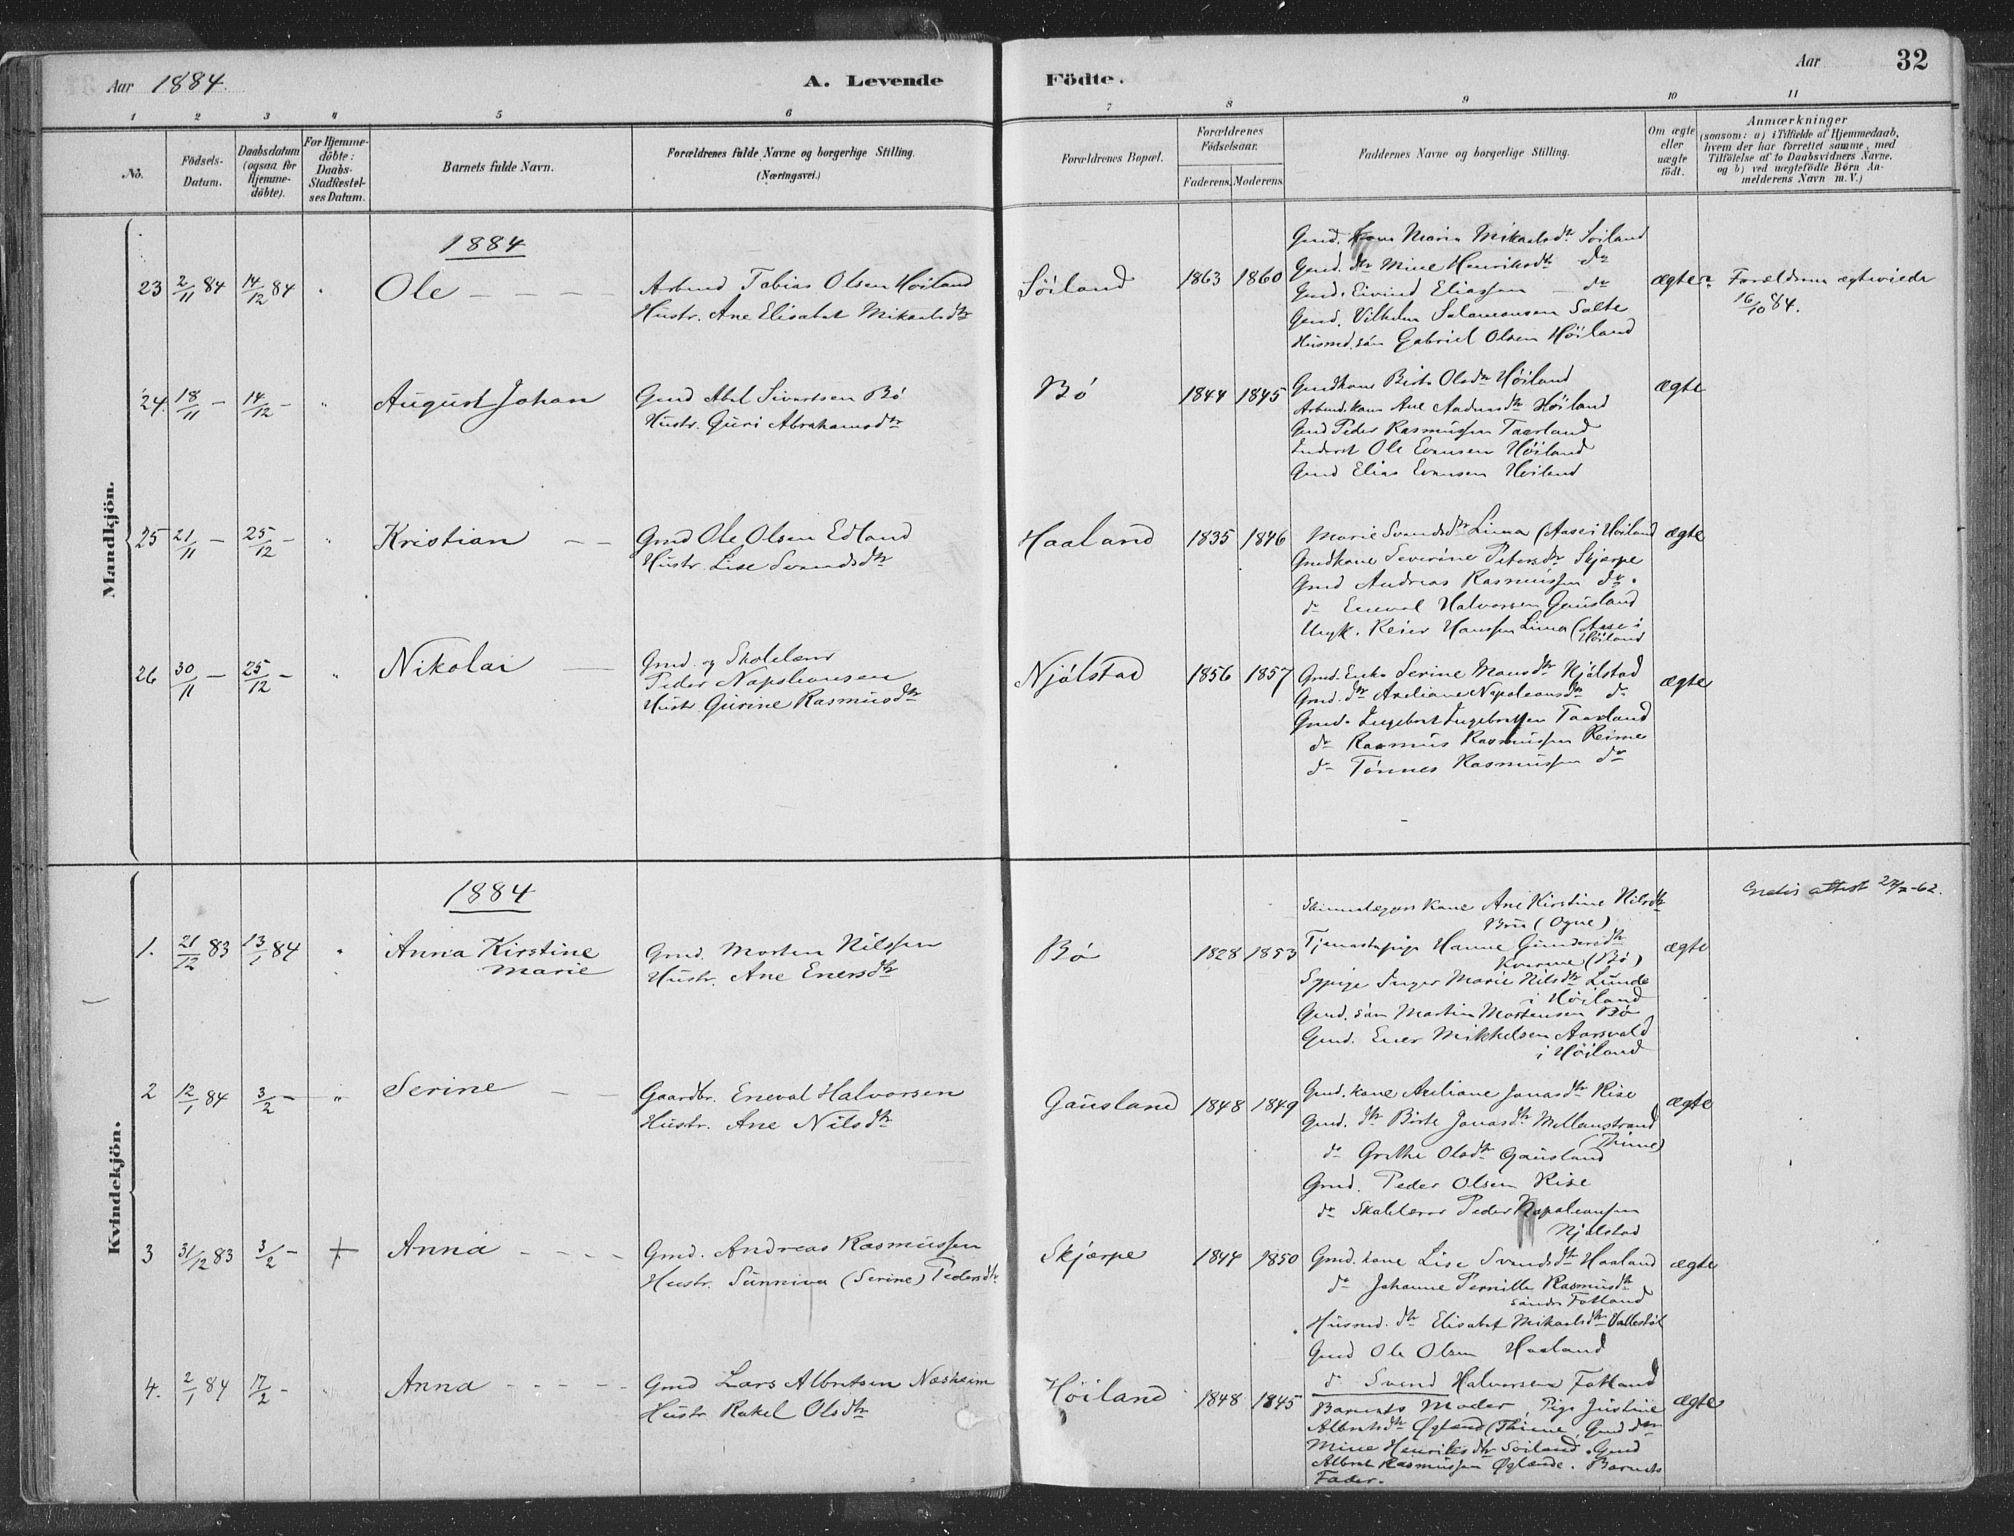 Aar 1884.
A. Levende Födte.
Aar 32
1 2 3 4 5 6 7 8 9 10 11
No.
Födsels-Datum.
Daabsdatum (ogsaa for Hjemme-döbte).
For Hjemme-döbte: Daabs-Stadfæstel-ses Datum.
Barnets fulde Navn.
Forældrenes fulde Navne og borgerlige Stilling.
(Næringsvei.)
Forældrenes Bopæl.
Forældrenes Födselsaar.
Faderens. Moderens.
Faddernes Navne og borgerlige Stilling.
Om ægte eller uægte födt.
Anmærkninger
(saasom: a) i Tilfælde af Hjemmedaab, hvem der har forrettet samme, med Tilföielse af to Daabsvidners Navne, og b) ved uægtefödte Börn An-melderens Navn m. V.)
Mandkjön.
1884
23 2/11 84 14/12 84 Ole
Arbmd Tobias Olsen Høiland
Hustr. Ane Elisabet Mikaelsdtr
Søiland 1863 1860
Gmd. Kone Maria Mikaelsdtr Søiland
Gmd. dtr Mine Henriksdtr do
Gmd. Eivind Eliassen do
Gmd. Vilhelm Salamonsen Salte
Husmd. søn Gabriel Olsen Høiland
ægte
Forældrene ægteviede
16/10 84.
24. 18/11 - 14/12 - August Johan
Gmd Abel Sivertsen Bø
Hustr. Guri Abrahamsdtr
Bø 1844 1845
Gmdkone Birte Olsdtr Høiland
Arbmd. kone Ane Aadnesdtr Høiland
Gmd Peder Rasmussen Taarland
Inderst Ole Evensen Høiland
Gmd Elias Evensen Høiland
ægte
25 21/11 - 25/12 - Kristian
Gmd Ole Olsen Edland
Hustr. Lise Svendsdtr
Haaland 1835 1846
Marie Svendsdtr Lima (Aase i Høiland
Gmdkone Severine Petersdtr Skjærpe
Gmd Andreas Rasmussen do.
do Eneval Halvorsen Gausland
Ungk. Reier Hanssen Lima (Aase i
Høiland
ægte
26 30/11 - 25/12 - Nikolai
Gmd. og Skolelærer
Peder Napoleonsen
Hustr. Gurine Rasmusdtr
Njølstad 1856 1857
Gmd. Enke Serine Monsdtr Njølstad
Gmd. dtr Axeliane Napoleonsdtr do
Gmd. Ingebret Ingebretsen Taarland
do Rasmus Rasmussen Reime
do Tønnes Rasmussen do
ægte
Kvindekjön.
1884
1. 21/12 83 13/1 84 Anna Kirstine
Marie
Gmd. Morten Nilssen
Hustr. Ane Enersdtr
Bø 1828 1853
Kone Ane Kirstine Nilsdtr
Bru (Ogne)
Tjenestepige Hanne Gundersdtr
Kverme (Bø)
Sypige Inger Marie Nilsdtr Lunde
i Høiland
Gmd. søn Martin Mortensen Bø
Gmd. Ener Mikkelsen Aarsvold
i Høiland
ægte
attest 27/7-62.
2 12/1 84 3/2 - Serine
Gaardbr. Eneval Halvorsen
Hustr. Ane Nilsdtr
Gausland 1848 1849
Gmd. kone Axeliane Jonasdtr Rise
Gmd. dtr Birte Jonasdtr Mellanstrand
(Thime)
do Grethe Olsdtr Gausland
Gmd. Peder Olsen Rise
do Skolelærer Peder Napoleonsen
Njølstad
ægte
3 31/12 83 3/2 - + Anna
Gmd. Andreas Rasmussen
Hustr. Sunniva (Serine) Pedersdtr
Skjærpe 1844 1850
Gmd. kone Lise Svendsdtr Haaland
do Johanne Pernille Rasmusdtr
søndre Fotland
Husmd. dtr Elisabet Mikaelsdtr Vallestøl
Gmd Ole Olsen Haaland
do Svend Halvorsen Fotland
ægte
4. 2/1 84 17/2 - Anna
Gmd Lars Albretsen Næsheim
Hustr Rakel Olsdtr
Høiland 1848 1845
Barnets Moder, Pige Justine
Albretsdtr Øgland (Thime, Gmd dtr
Mine Henriksdtr Søiland. Gmd
Albret Rasmussen Øglænde. Barnets
Fader.
ægte